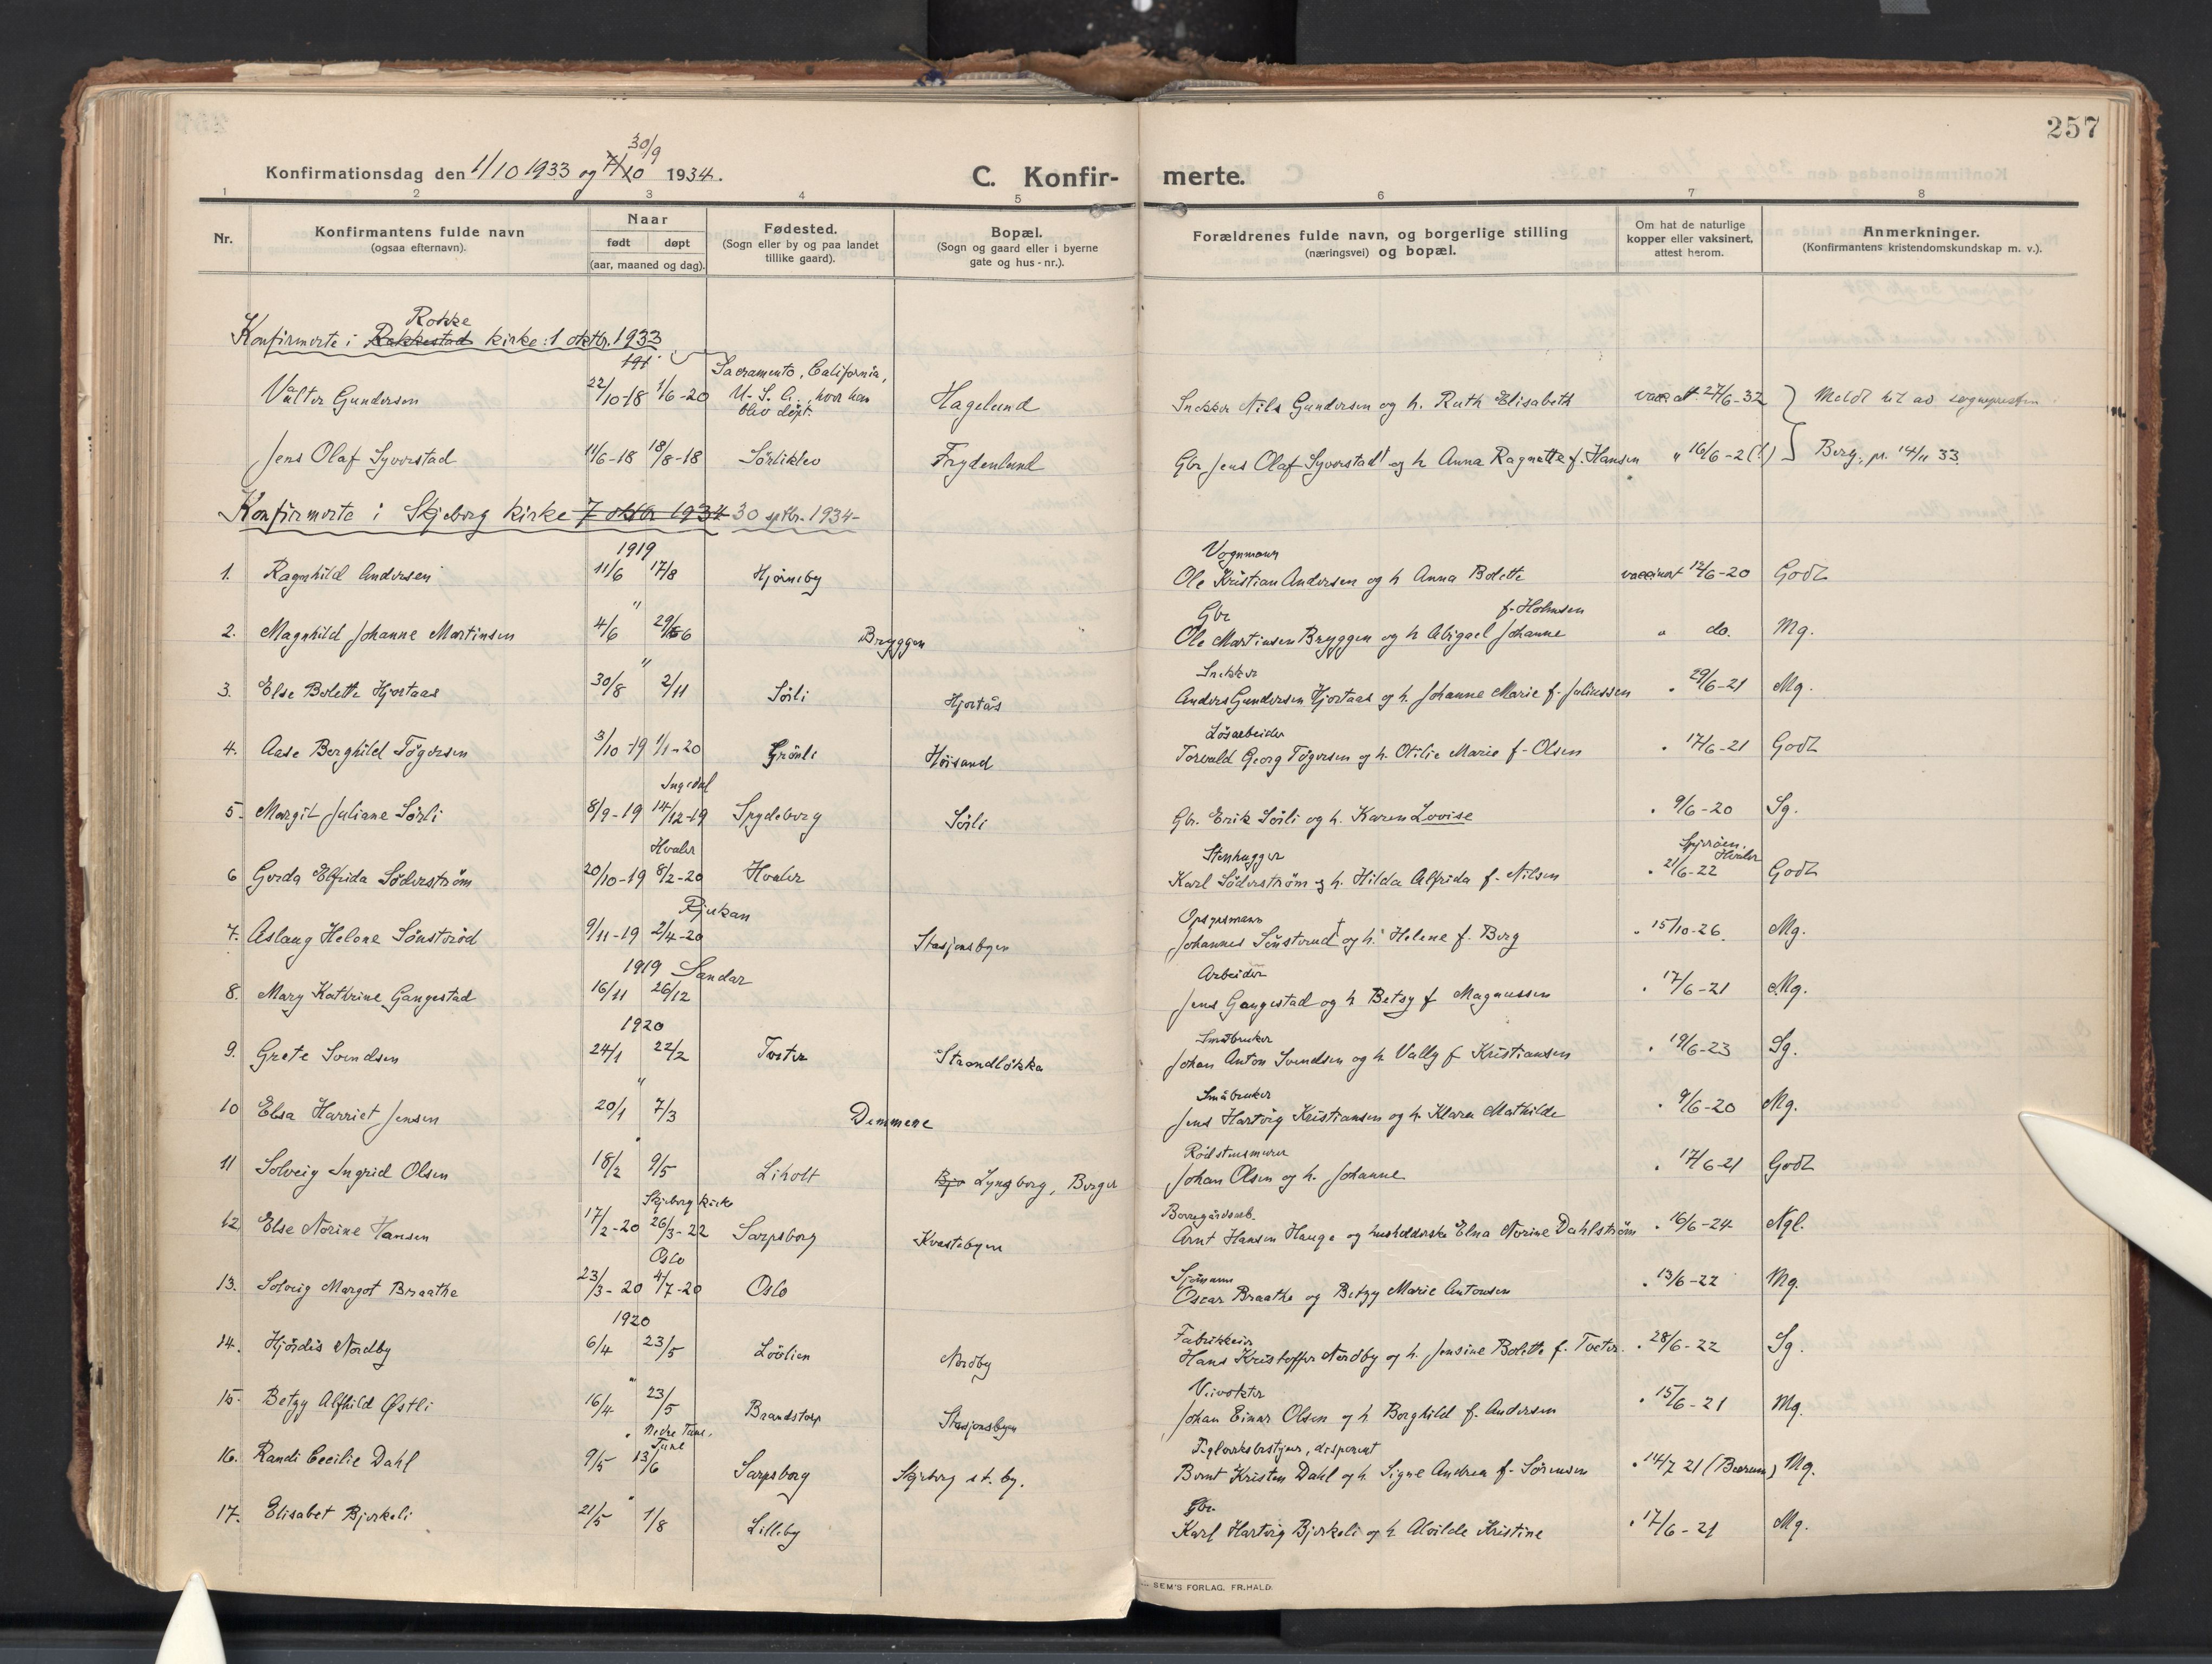 257
Konfirmationsdag den 1/10 1933 og 7/10 30/9 1934.
C. Konfir- merte.
1 2 3 4 5 6 7 8
Nr.
Konfirmantens fulde navn
(ogsaa efternavn).
Naar
født døpt
(aar, maaned og dag).
Fødested.
(Sogn eller by og paa landet
tillike gaard).
Bopæl.
(Sogn og gaard eller i byerne
gate og hus-nr.).
Forældrenes fulde navn, og borgerlige stilling
(næringsvei) og bopæl.
Om hat de naturlige
kopper eller vaksinert,
attest herom.
Anmerkninger.
(Konfirmantens kristendomskundskap m. v.).
Rokke
Konfirmerte i Rakkestad kirke: 1 oktbr. 1933
Sacramento, California,
Valter Gundersen 22/10-18 1/6-20 U.S.A., hvor han Hagelund Snekker Nils Gundersen og h. Ruth Elisabeth 27/6-32 Meldt hit av sognepresten
blev døpt.
Jens Olaf Syverstad 11/6-18 18/8-18 Sørliklev Frydenlund Gbr Jens Olaf Syverstad † og h Anna Ragnette f. Hansen " 16/6-2(?) Berg, pr. 14/11 33.
Konfirmerte i Skjeberg kirke 7 oktbr 1934 30 sptbr. 1934-
1919 Vognmann
1. Ragnhild Andersen 11/6 17/8 Hjørneby Ole Kristian Andersen og h Anna Bolette vaccinert 12/6-20 Godt
" Gbr f. Holmsen
2. Magnhild Johanne Martinsen 4/6 29/6 Bryggen Ole Martinsen Bryggen og h Abigael Johanne " do. Mg.
" Snekker
3. Else Bolette Hjortaas 30/8 2/11 Sørli Hjortås Anders Gundersen Hjortaas og h. Johanne Marie f. Juliussen " 29/6-21 Mg.
Løsarbeider
4. Aase Borghild Tøgersen 3/10-19 1/1-20 Grönli Høisand Torvald Georg Tøgersen og h. Otilie Marie f. Olsen " 17/6-21 Godt
Ingedal
5. Margit Juliane Sørli 8/9-19 14/12-19 Spydeberg Sörli Gbr. Erik Sörli og h. Karen Lovise " 9/6-20 Sg.
Hvaler Stenhugger Spjærøen, Hvaler
6 Gerda Elfrida Söderström 20/10-19 8/2-20 Hvaler Karl Söderström og h. Hilda Alfrida f. Nilsen " 21/6-22 Godt
Rjukan Opsynsmann
7. Aslaug Helene Sönsteröd 9/11-19 2/4-20 Stasjonsbyen Johannes Sönsterud † og h. Helene f. Berg " 15/10-26. Mg.
1919 Sandar Arbeider
8. Mary Kathrine Gangestad 16/11 26/12 Jens Gangestad og h Betsy f Magnussen " 17/6-21 Mg.
1920 Småbruker
9. Grete Svendsen 24/1 22/2 Tveter Strandløkka Johan Anton Svendsen og h Vally f Kristiansen " 19/6-23 Sg.
" Småbruker
10 Elsa Harriet Jensen 20/1 7/3 Demmene Jens Hartvig Kristiansen og h. Klara Mathilde " 9/6-20 Mg.
" Rødstensmurer
11 Solveig Ingrid Olsen 18/2 9/5 Liholt Lyngborg, Berger Johan Olsen og h. Johanne " 17/6-21 Godt
Skjeberg kirke Borregårdsarb.
12 Else Norine Hansen 17/2-20 26/3-22 Sarpsborg Kvastebyen Arnt Hansen Hauge og husholderske Elna Norine Dahlström " 16/6-24 Ngl.
Oslo Sjömann
13. Solveig Margot Braathe 23/3-20 4/7-20 Oslo Oscar Braathe og Betzy Marie Antonsen " 13/6-22 Mg.
1920
14. Hjördis Nordby 6/4 23/5 Lövlien Nordby Hans Kristoffer Nordby og h. Jensine Bolette f. Tveter. " 28/6-22 Sg.
" Veivokter
15. Betzy Alfhild Østli 16/4 23/5 Brandstorp Stasjonsbyen Johan Einar Olsen og h Borghild f. Andersen " 15/6-21 Mg.
" Nedre Tune, Tune Teglverksbestyrer, disponent
16. Randi Cecilie Dahl 9/5 13/6 Sarpsborg Skjeberg st. by. Bernt Kristen Dahl og h. Signe Andrea f. Sørensen " 14/7 21 (Bærum) Mg.
" Gbr.
17. Elisabet Bjerkeli 21/5 1/8 Lilleby Karl Hartvig Bjerkeli og h Alvilde Kristine " 17/6-21 Mg.
SEM'S FORLAG. FR.HALD.